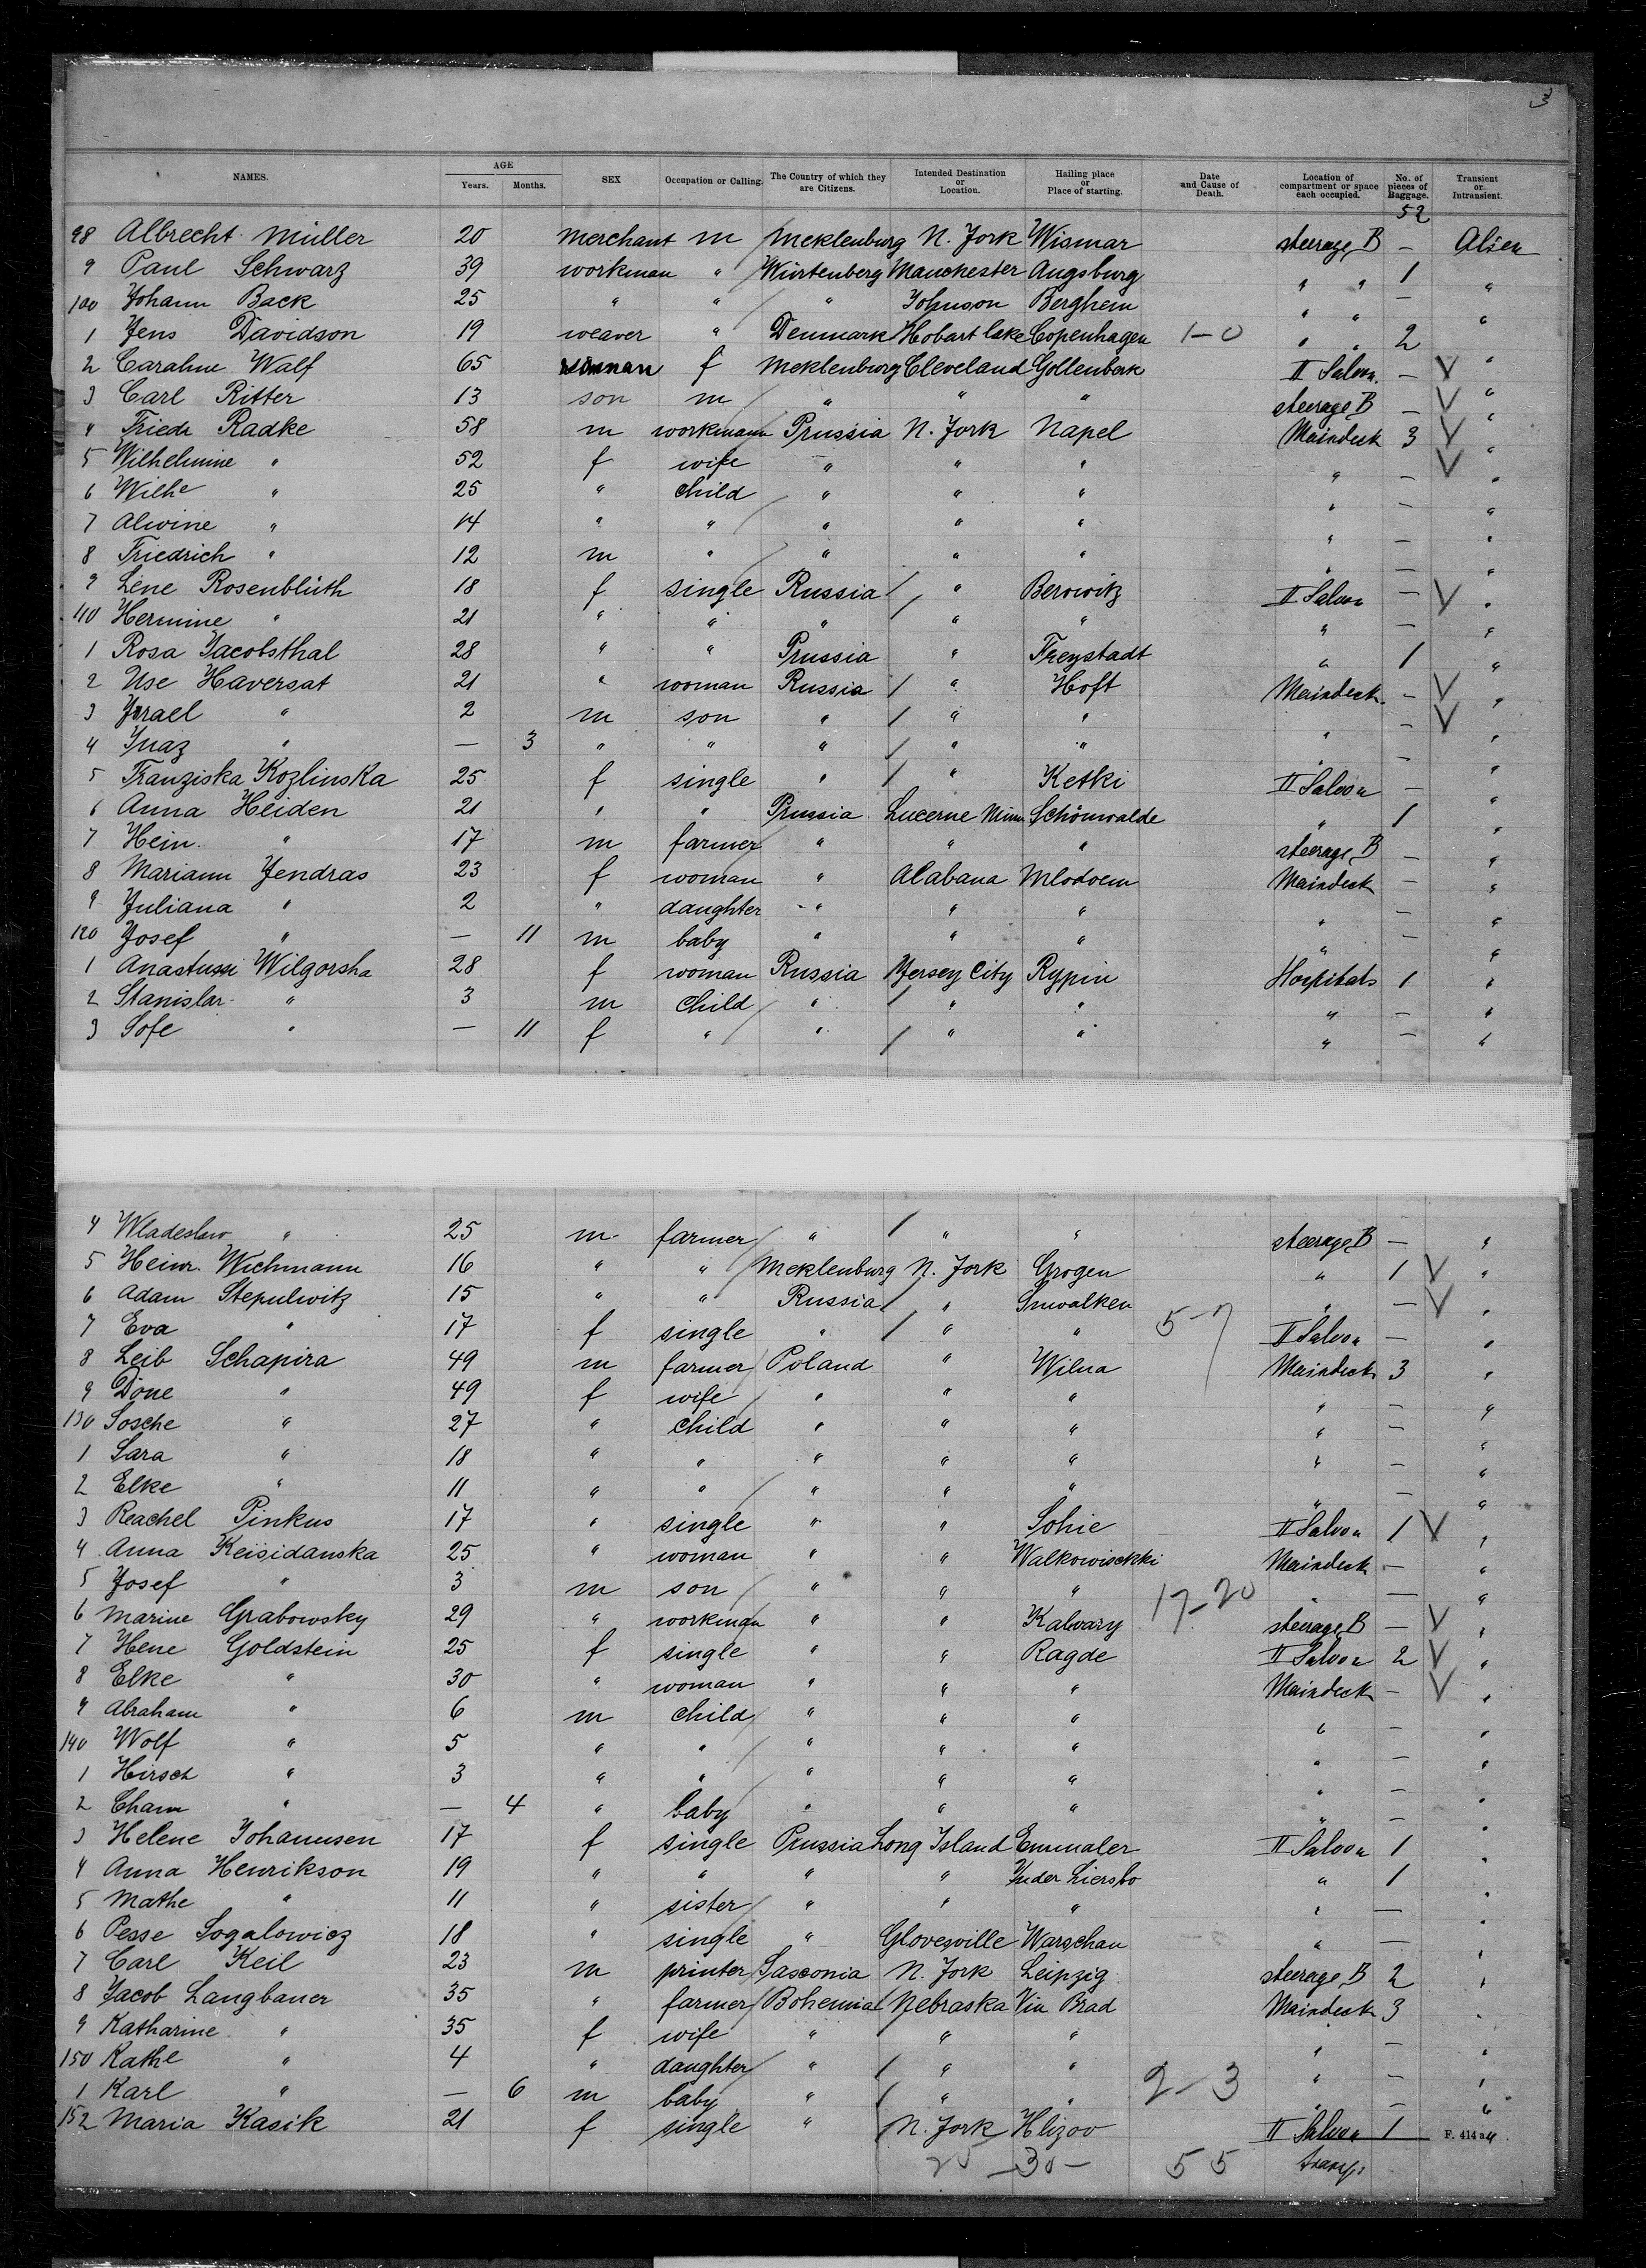 3
NAMES. AGE Years. Months. SEX Occupation or Calling. The Country of which they are Citizens. Intended Destination or Location. Hailing place or Place of starting. Date and Cause of Death. Location of compartment or space each occupied. No. of pieces of Baggage. Transient or Intransient.
52
98 Albrecht Müller 20 Merchant m Meklenburg N. Jork Wismar steerage B — Alien
9 Paul Schwarz 39 workman " Würtenberg Manchester Augsburg " " 1 "
100 Johann Back 25 " " " Johnson Berghem " " — "
1 Jens Davidson 19 weaver " Denmark Hobart lake Copenhagen 1-0 " " 2 "
2 Caraline Walf 65 woman f Meklenburg Cleveland Gollenbeck II Saloon — V "
3 Carl Ritter 13 son m " " " steerage B — V "
4 Friedr Radke 58 m workmann Prussia N. Jork Napel Maindeck 3 V "
5 Wilhelmine " 52 f wife " " " " — V "
6 Wilhe " 25 " child " " " " — "
7 Alwine " 14 " " " " " " — "
8 Friedrich " 12 m " " " " " — "
9 Lene Rosenblüth 18 f single Russia " Berwitz II Saloon — V "
110 Hermine " 21 " " " " " " — "
1 Rosa Jacobsthal 28 " " Prussia " Freystadt " 1 "
2 Use Haversat 21 " woman Russia " Hoft Maindeck — V "
3 Jsrael " 2 m son " " " " — V "
4 Jnaz " — 3 " " " " " " — "
5 Franziska Kozlinska 25 f single " " Ketki II Saloon — "
6 Anna Heiden 21 " " Prussia Lucerne Minn Schönwalde " 1 "
7 Hein. " 17 m farmer " " " steerage B — "
8 Mariann Jendras 23 f woman " Alabana Mlodoem Maindeck — "
9 Juliana " 2 " daughter " " " " — "
120 Josef " — 11 m baby " " " " — "
1 Anastussi Wilgorsha 28 f woman Russia Jersey City Rypin Hospitals 1 "
2 Stanislar " 3 m child " " " " — "
3 Sofe " — 11 f " " " " " — "
4 Wladeslaw " 25 m farmer " " " steerage B — "
5 Heinr. Wichmann 16 " " Meklenburg N. Jork Grogen " 1 V "
6 Adam Stepulwitz 15 " " Russia " Suwalken " — V "
7 Eva " 17 f single " " " 5-7 II Saloon — "
8 Leib Schapira 49 m farmer Poland " Wilna Maindeck 3 "
9 Done " 49 f wife " " " " — "
130 Sosche " 27 " child " " " " — "
1 Sara " 18 " " " " " " — "
2 Elke " 11 " " " " " " — "
3 Reachel Pinkus 17 " single " " Sohie II Saloon 1 V "
4 Anna Keisidanska 25 " woman " " Walkowisckki Maindeck — "
5 Josef " 3 m son " " " 17-20 " — "
6 Marine Grabowsky 29 " workman " " Kalvary steerage B — V "
7 Hene Goldstein 25 f single " " Ragde II Saloon 2 V "
8 Elke " 30 " woman " " " Maindeck — V "
9 Abraham " 6 m child " " " " — "
140 Wolf " 5 " " " " " " — "
1 Hirsch " 3 " " " " " " — "
2 Cham " — 4 " baby " " " " — "
3 Helene Johannsen 17 f single Prussia Long Island Emmaler II Saloon 1 "
4 Anna Henrikson 19 " " " " Juder Liersbo " 1 "
5 Mathe " 11 " sister " " " " — "
6 Pesse Sogalowicz 18 " single " Glovesville Warschau " — "
7 Carl Keil 23 m printer Sasconia N. Jork Leipzig steerage B 2 "
8 Jacob Langbauer 35 " farmer Bohemia Nebraska Vin Brad Maindeck 3 "
9 Katharine " 35 f wife " " " " — "
150 Kathe " 4 " daughter " " " " — "
1 Karl " — 6 m baby " " " 2-3 " — "
152 Maria Kasik 21 f single " N. Jork Hlizov II Saloon 1 "
F. 414
—30— 55